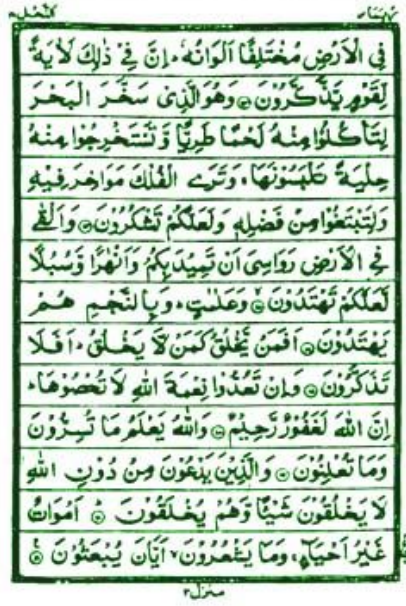 ربما ١٤ النحل ١٦
فِي الْاَرْضِ مُخْتَلِفًا اَلْوَانُهٗ ؕ اِنَّ فِيْ ذٰلِكَ لَاٰيَةً
لِّقَوْمٍ يَّذَّكَّرُوْنَ ۝ وَهُوَ الَّذِيْ سَخَّرَ الْبَحْرَ
لِتَاْكُلُوْا مِنْهُ لَحْمًا طَرِيًّا وَّتَسْتَخْرِجُوْا مِنْهُ
حِلْيَةً تَلْبَسُوْنَهَا ۚ وَتَرَى الْفُلْكَ مَوَاخِرَ فِيْهِ
وَلِتَبْتَغُوْا مِنْ فَضْلِهٖ وَلَعَلَّكُمْ تَشْكُرُوْنَ ۝ وَاَلْقٰى
فِي الْاَرْضِ رَوَاسِيَ اَنْ تَمِيْدَ بِكُمْ وَاَنْهٰرًا وَّسُبُلًا
لَّعَلَّكُمْ تَهْتَدُوْنَ ۝ وَعَلٰمٰتٍ ؕ وَبِالنَّجْمِ هُمْ
يَهْتَدُوْنَ ۝ اَفَمَنْ يَّخْلُقُ كَمَنْ لَّا يَخْلُقُ ؕ اَفَلَا
تَذَكَّرُوْنَ ۝ وَاِنْ تَعُدُّوْا نِعْمَةَ اللّٰهِ لَا تُحْصُوْهَا ؕ
اِنَّ اللّٰهَ لَغَفُوْرٌ رَّحِيْمٌ ۝ وَاللّٰهُ يَعْلَمُ مَا تُسِرُّوْنَ
وَمَا تُعْلِنُوْنَ ۝ وَالَّذِيْنَ يَدْعُوْنَ مِنْ دُوْنِ اللّٰهِ
لَا يَخْلُقُوْنَ شَيْـًٔا وَّهُمْ يُخْلَقُوْنَ ۝ اَمْوَاتٌ
غَيْرُ اَحْيَآءٍ ۚ وَمَا يَشْعُرُوْنَ ۙ اَيَّانَ يُبْعَثُوْنَ ۝
منزل ٣